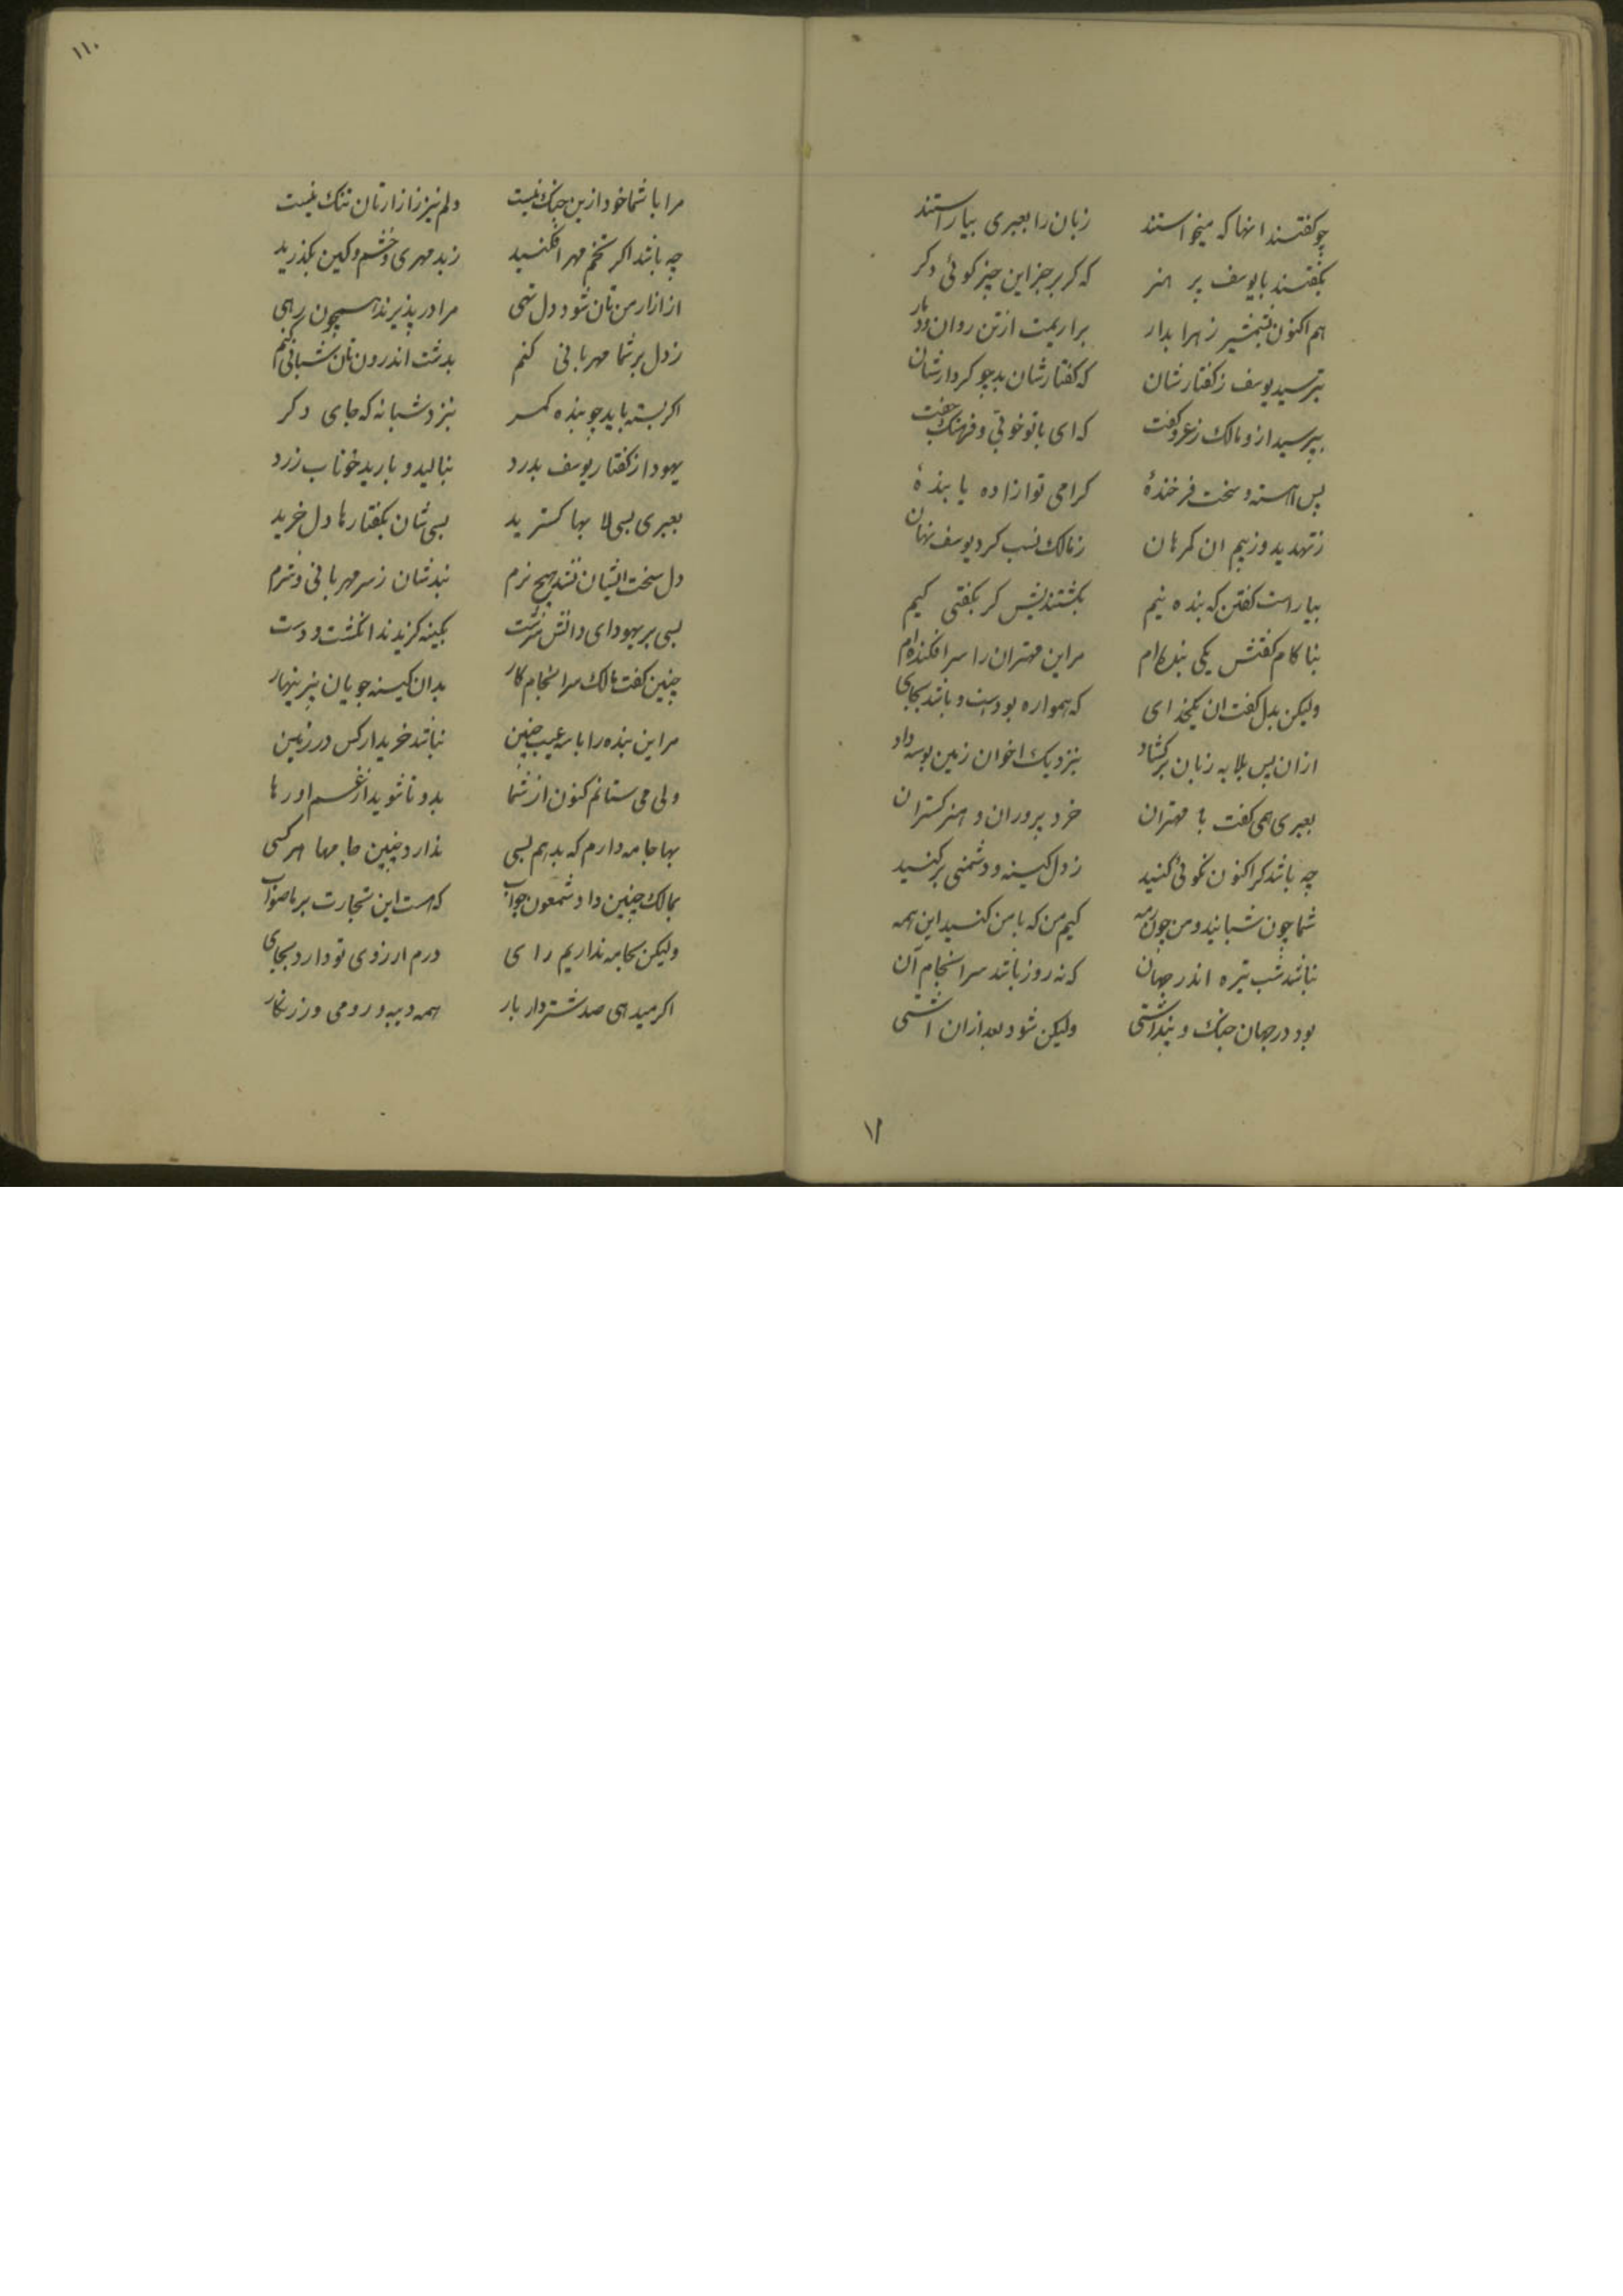 چو کفتند انها که میخواستند زبان را بعبری بیاراستند
بکفتند با یوسف پر هنر که کر بر جز این چیز کوئی دکر
هم اکنون بشمشیر زهرا بدار براریمت از تن روان
بترسید یوسف ز کفتارشان که کفتارشان بد چو کردارشان
بپرسید ازو مالک زعر و کفت که ای با تو خوبی و فرهنک جفت
پس اهسته و سخت فرخندهٔ کرامی تو ازاده یا بندهٔ
ز تهدید وز بیم ان کمرهان ز مالک نسب کرد یوسف نهان
بیارست کفتن که بنده نیم بکشتندیش کر بکفتی کیم
بناکام کفتش یکی بنده‌ام مر این مهتران را سرافکنده‌ام
ولیکن بدل کفت ان یکخدای که همواره بودست و باشد بجای
ازان پس بلابه زبان برکشاد بنزدیک اخوان زمین بوسه داد
بعبری همی کفت با مهتران خرد پروران و هنر کستران
چه باشد کر اکنون نکوئی کنید ز دل کینه و دشمنی برکنید
شما چون شبانید و من چون رمه کیم من که با من کنید این همه
نباشد شب تیره اندر جهان که نه روز باشد سرانجام آن
بود در جهان جنک و پنداشتی ولیکن شود بعد ازان اشتی
۱۱
۱۱۰
مرا با شما خود ازین جنک نیست دلم نیز زازارتان تنک نیست
چه باشد اکر تخم مهر افکنید ز بد مهری و خشم و کین بکذرید
از ازار من تان شود دل تهی مرا درپذیرند همچون رهی
ز دل بر شما مهربانی کنم بدشت اندرون تان شبانی کنم
اکر بسته باید چو بنده کمر بنزد شبانه که جای دکر
یهودا ز کفتار یوسف بدرد بنالید و بارید خوناب زرد
بعبری بسی لابها کسترید بسی شان بکفتارها دل خرید
دل سخت ایشان نشد هیچ نرم نبدشان ز سر مهربانی و شرم
بسی بر یهودای دانش سرشت بکینه کزیدند انکشت و دست
چنین کفت مالک سرانجام کار بدان کینه جویان پرینهار
مر این بنده را با سه عیب چنین نباشد خریدار کس در زمین
ولی می ستانم کنون از شما بدو تا شوید از غم او رها
بها جامه دارم که بدهم بسی ندارد چنین جامها هر کسی
بمالک چنین داد شمعون جواب که هست این تجارت بر ما صواب
ولیکن بجامه نداریم رای درم ارزوی تو دارد بجای
اکر میدهی صد شتروار بار همه دیبه و رومی و زرنکار